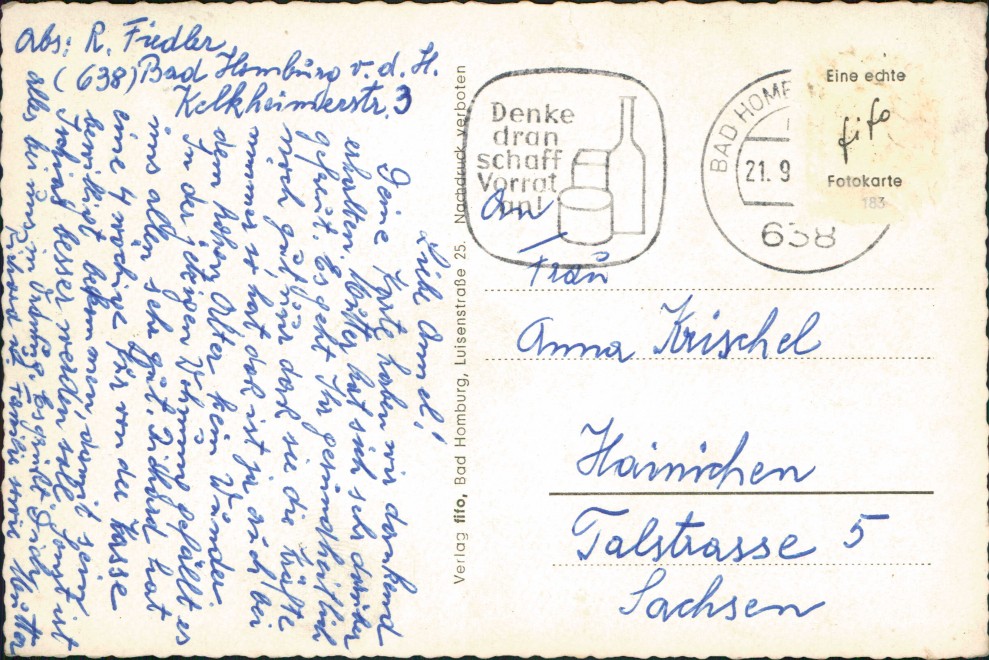 Abs: R. Fiedler
(638) Bad Homburg v. d. H.
Kelkheimerstr. 3
Liebe Annel!
Deine Karte haben wir dankend
erhalten. Mutter hat sich sehr darüber
gefreut. Es geht Ihr gesundheitlich
noch gut, nur daß sie die Kräfte
nimmer so hat, doch ist ja auch bei
dem hohen Alter kein Wunder.
In der jetzigen Wohnung gefällt es
uns allen sehr gut. Richard hat
eine 4 wöchige Kür von der Kasse
bewilligt bekommen, damit sein
Ischias besser werden soll. Sonst ist
alles bei uns in Ordnung. Es grüßt Dich
Richard u. Familie sowie Mutter
Verlag fifo, Bad Homburg, Luisenstraße 25. Nachdruck verboten
Denke
dran
schaff
Vorrat
an!
BAD HOMB
21. 9
638
Eine echte
fifo
Fotokarte
183
An
Frau
Anna Krischel
Hainichen
Talstrasse 5
Sachsen